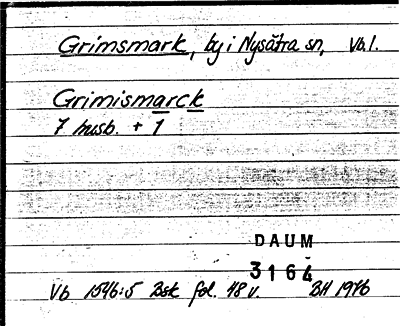 Grimsmark, by i Nysätra sn, Vb.l.
Grimismarck
7 husb. + 1
DAUM
3164
Vb 1546:5 Bsk fol. 48 v. BH 1946